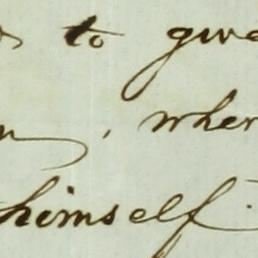 to give
, when
himself.